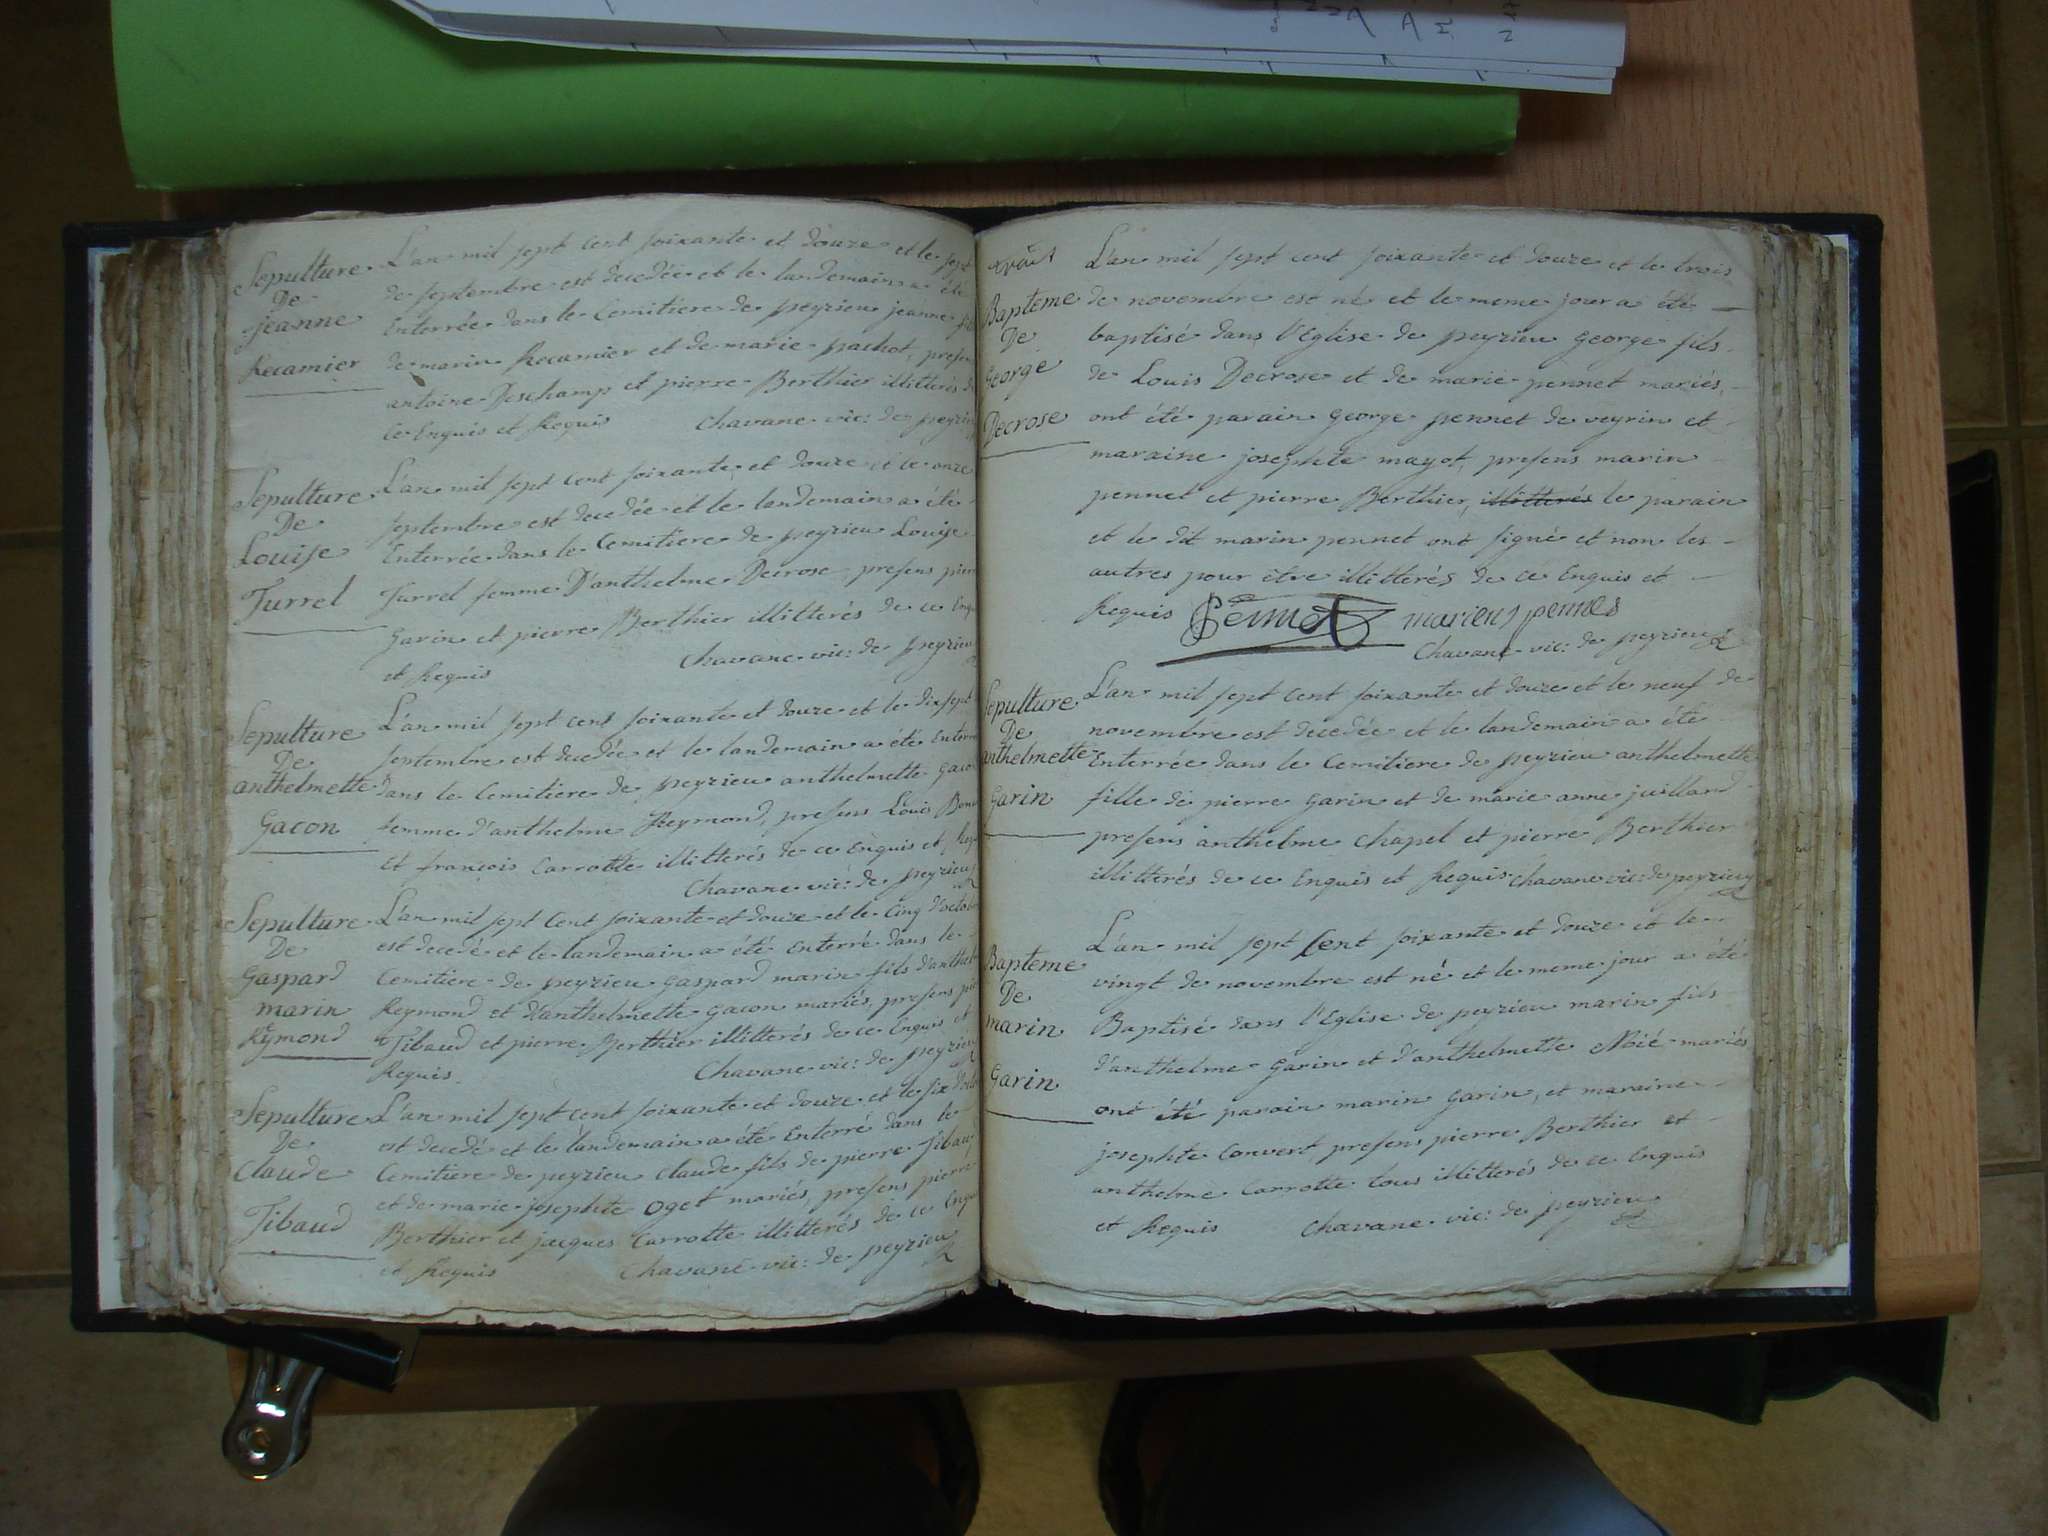 Sepulture
De
jeanne
Recamier
L'an mil sept cent soixante et douze et le sept
de septembre est decedée et le landemain a été
Enterrée dans le Cemitiere de peyrieu jeanne
de marin Recamier et de marie pachot,
antoine Deschamp et pierre Berthier illitterés
ce Enquis et Requis Chavane vic: de
Sepulture
De
Louise
Turrel
L'an mil sept cent soixante et douze et le onze
septembre est decedée et le landemain a été
Enterrée dans le Cemitiere de peyrieu Louise
Turrel femme D'anthelme Decrose, presens
Garin et pierre Berthier illitterés de ce
et Requis Chavane vic: de peyrieu
Sepulture
De
anthelmette
Gacon
L'an mil sept cent soixante et douze et le dixsept
septembre est decedée et le landemain a été
dans le Cemitiere de peyrieu anthelmette
femme d'anthelme Reymond, presens Louis
Et francois Carrotte illitterés de ce Enquis et
Chavane vic: de peyrieu
Sepulture
De
Gaspard
marin
Rymond
L'an mil sept Cent soixante et douze et le Cinq
est decedé et le landemain a été Enterré dans le
Cemitiere de peyrieu Gaspard marin fils
Reymond et d'anthelmette Gacon mariés, presens
Tibaud et pierre Berthier illitterés de ce Enquis et
Requis. Chavane vic: de peyrieu
Sepulture
De
Claude
Tibaud
L'an mil sept cent soixante et douze et le six
est decedé et le landemain a été Enterré dans le
Cemitiere de peyrieu Claude fils de pierre Tibaud
et de marie josephte Oget mariés, presens pierre
Berthier et jacques Carrotte illitterés de ce
et Requis Chavane vic: de peyrieu
Bapteme
De
George
Decrose
L'an mil sept cent soixante et douze et le trois
de novembre est né et le meme jour a été
baptisé dans l'Eglise de peyrieu George fils
de Louis Decrose et de marie pennet mariés,
ont été parain George pennet de veyrin et
maraine josephte mayot, presens marin
pennet et pierre Berthier, illitterés le parain
et le dit marin pennet ont signé et non les
autres pour être illitterés de ce Enquis et
Requis
Chavane vic: de peyrieu
Sepulture
De
anthelmette
Garin
L'an mil sept cent soixante et douze et le neuf de
novembre est decedée et le landemain a été
Enterrée dans le Cemitiere de peyrieu anthelmette
fille de pierre Garin et de marie anne juilland
presens anthelme Chapel et pierre Berthier
illitterés de ce Enquis et Requis Chavane vic: de peyrieu
Bapteme
De
marin
Garin
L'an mil sept Cent soixante et douze et le
vingt de novembre est né et le meme jour a été
Baptisé dans l'Eglise de peyrieu marin fils
d'anthelme Garin et d'anthelmette mariés
ont été parain marin Garin, et maraine
josephte Convert, presens pierre Berthier et
anthelme Carrotte tous illitterés de ce Enquis
et Requis Chavane vic: de peyrieu